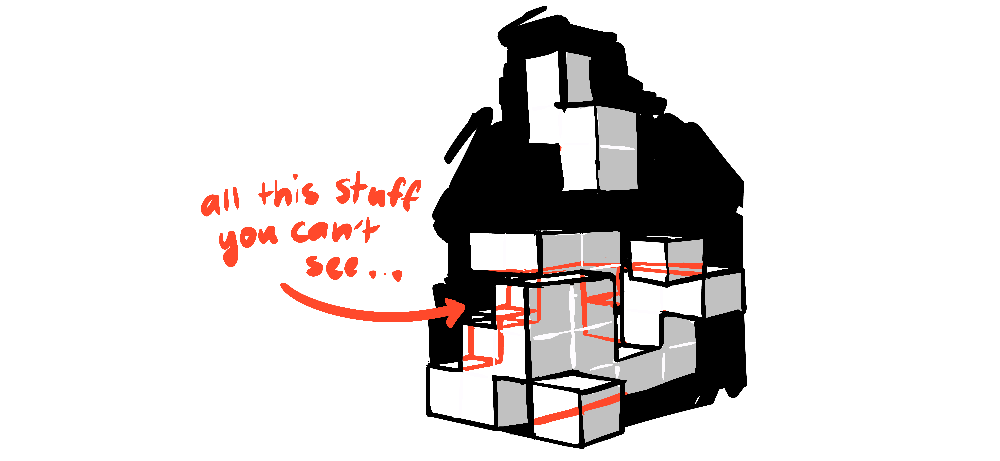 all this stuff
you can't
see...